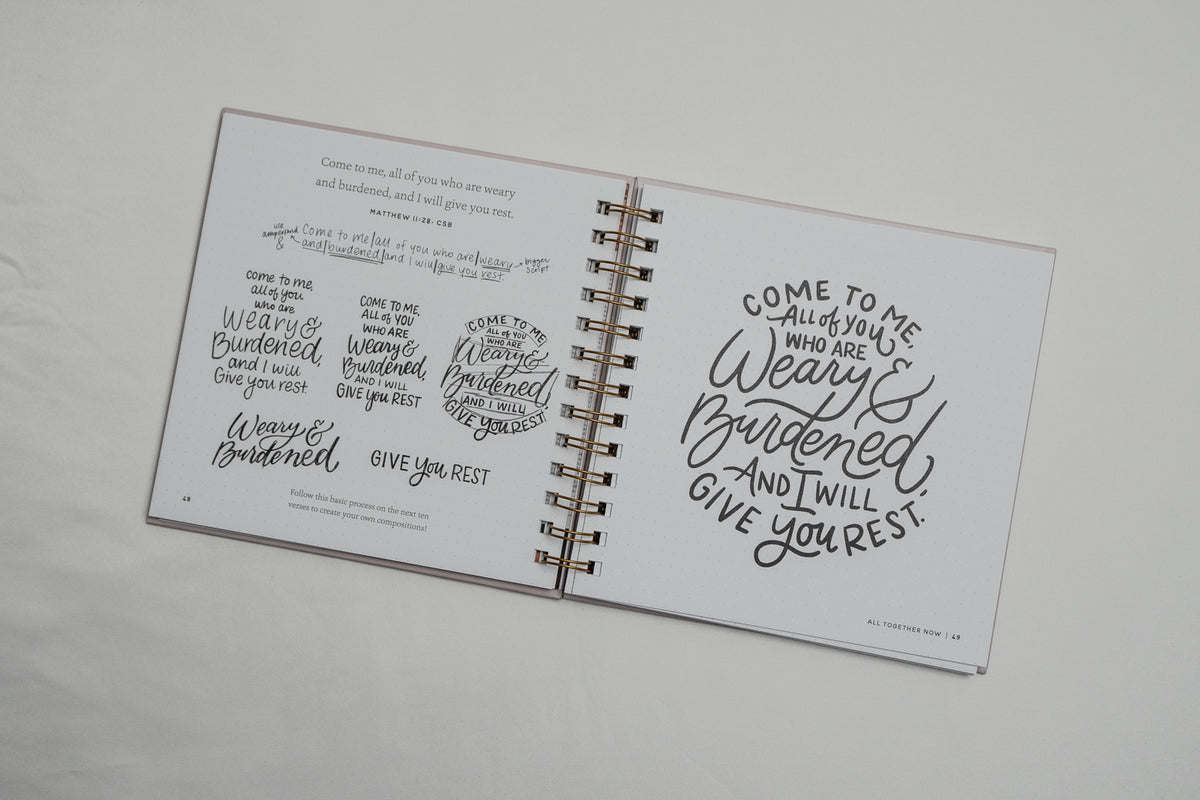 Come to me, all of you who are weary
and burdened, and I will give you rest.
MATTHEW 11:28, CSB
use
ampersand
&
Come to me/all of you who are/weary
and/burdened/and I will/give you rest.
bigger
script
come to me,
all of you
who are
Weary &
Burdened,
and I will
Give you rest.
COME TO ME,
ALL of YOU
WHO ARE
Weary &
Burdened,
AND I WILL
GIVE you REST
COME TO ME,
ALL of YOU
WHO ARE
Weary &
Burdened,
AND I WILL
GIVE you REST.
Weary &
Burdened
GIVE you REST
Follow this basic process on the next ten
verses to create your own compositions!
48
COME TO ME,
All of you
WHO ARE
Weary &
Burdened,
AND I WILL
GIVE you REST.
ALL TOGETHER NOW | 49